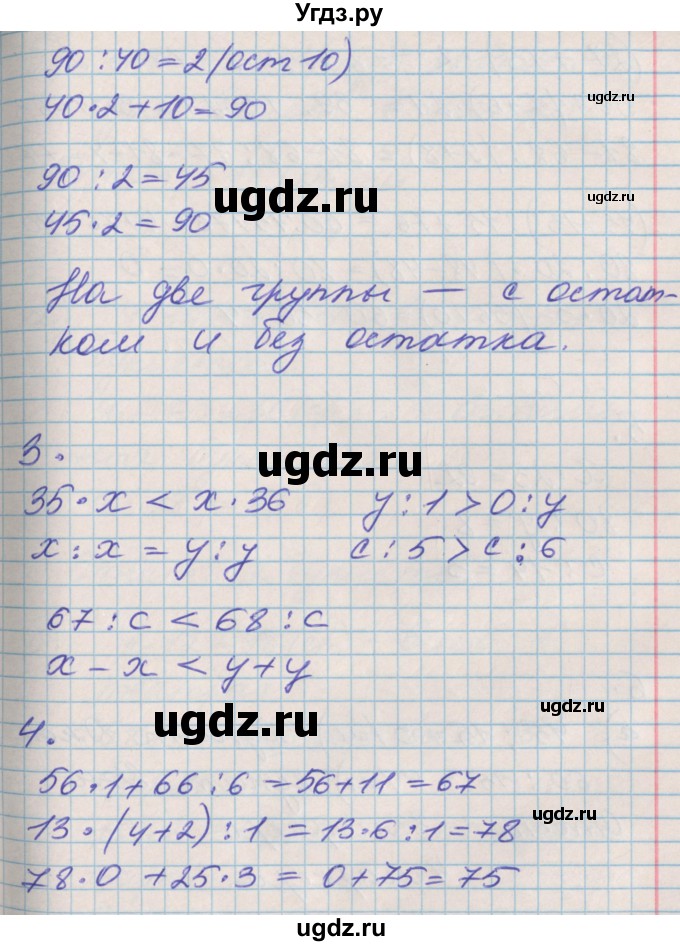 Угдз.ру
90 : 40 = 2 (ост 10)
40 · 2 + 10 = 90
ugdz.ru
90 : 2 = 45
ugdz.ru
ugdz.ru
45 · 2 = 90
На две группы — с остат-
ком и без остатка.
ugdz.ru
3.
35 · x < x · 36 y : 1 > 0 : y
x : x = y : y c : 5 > c : 6
67 : c < 68 : c
x - x < y + y
ugdz.ru
ugdz.ru
4.
56 · 1 + 66 : 6 = 56 + 11 = 67
ugdz.ru
13 · (4 + 2) : 1 = 13 · 6 : 1 = 78
78 · 0 + 25 · 3 = 0 + 75 = 75
ugdz.ru